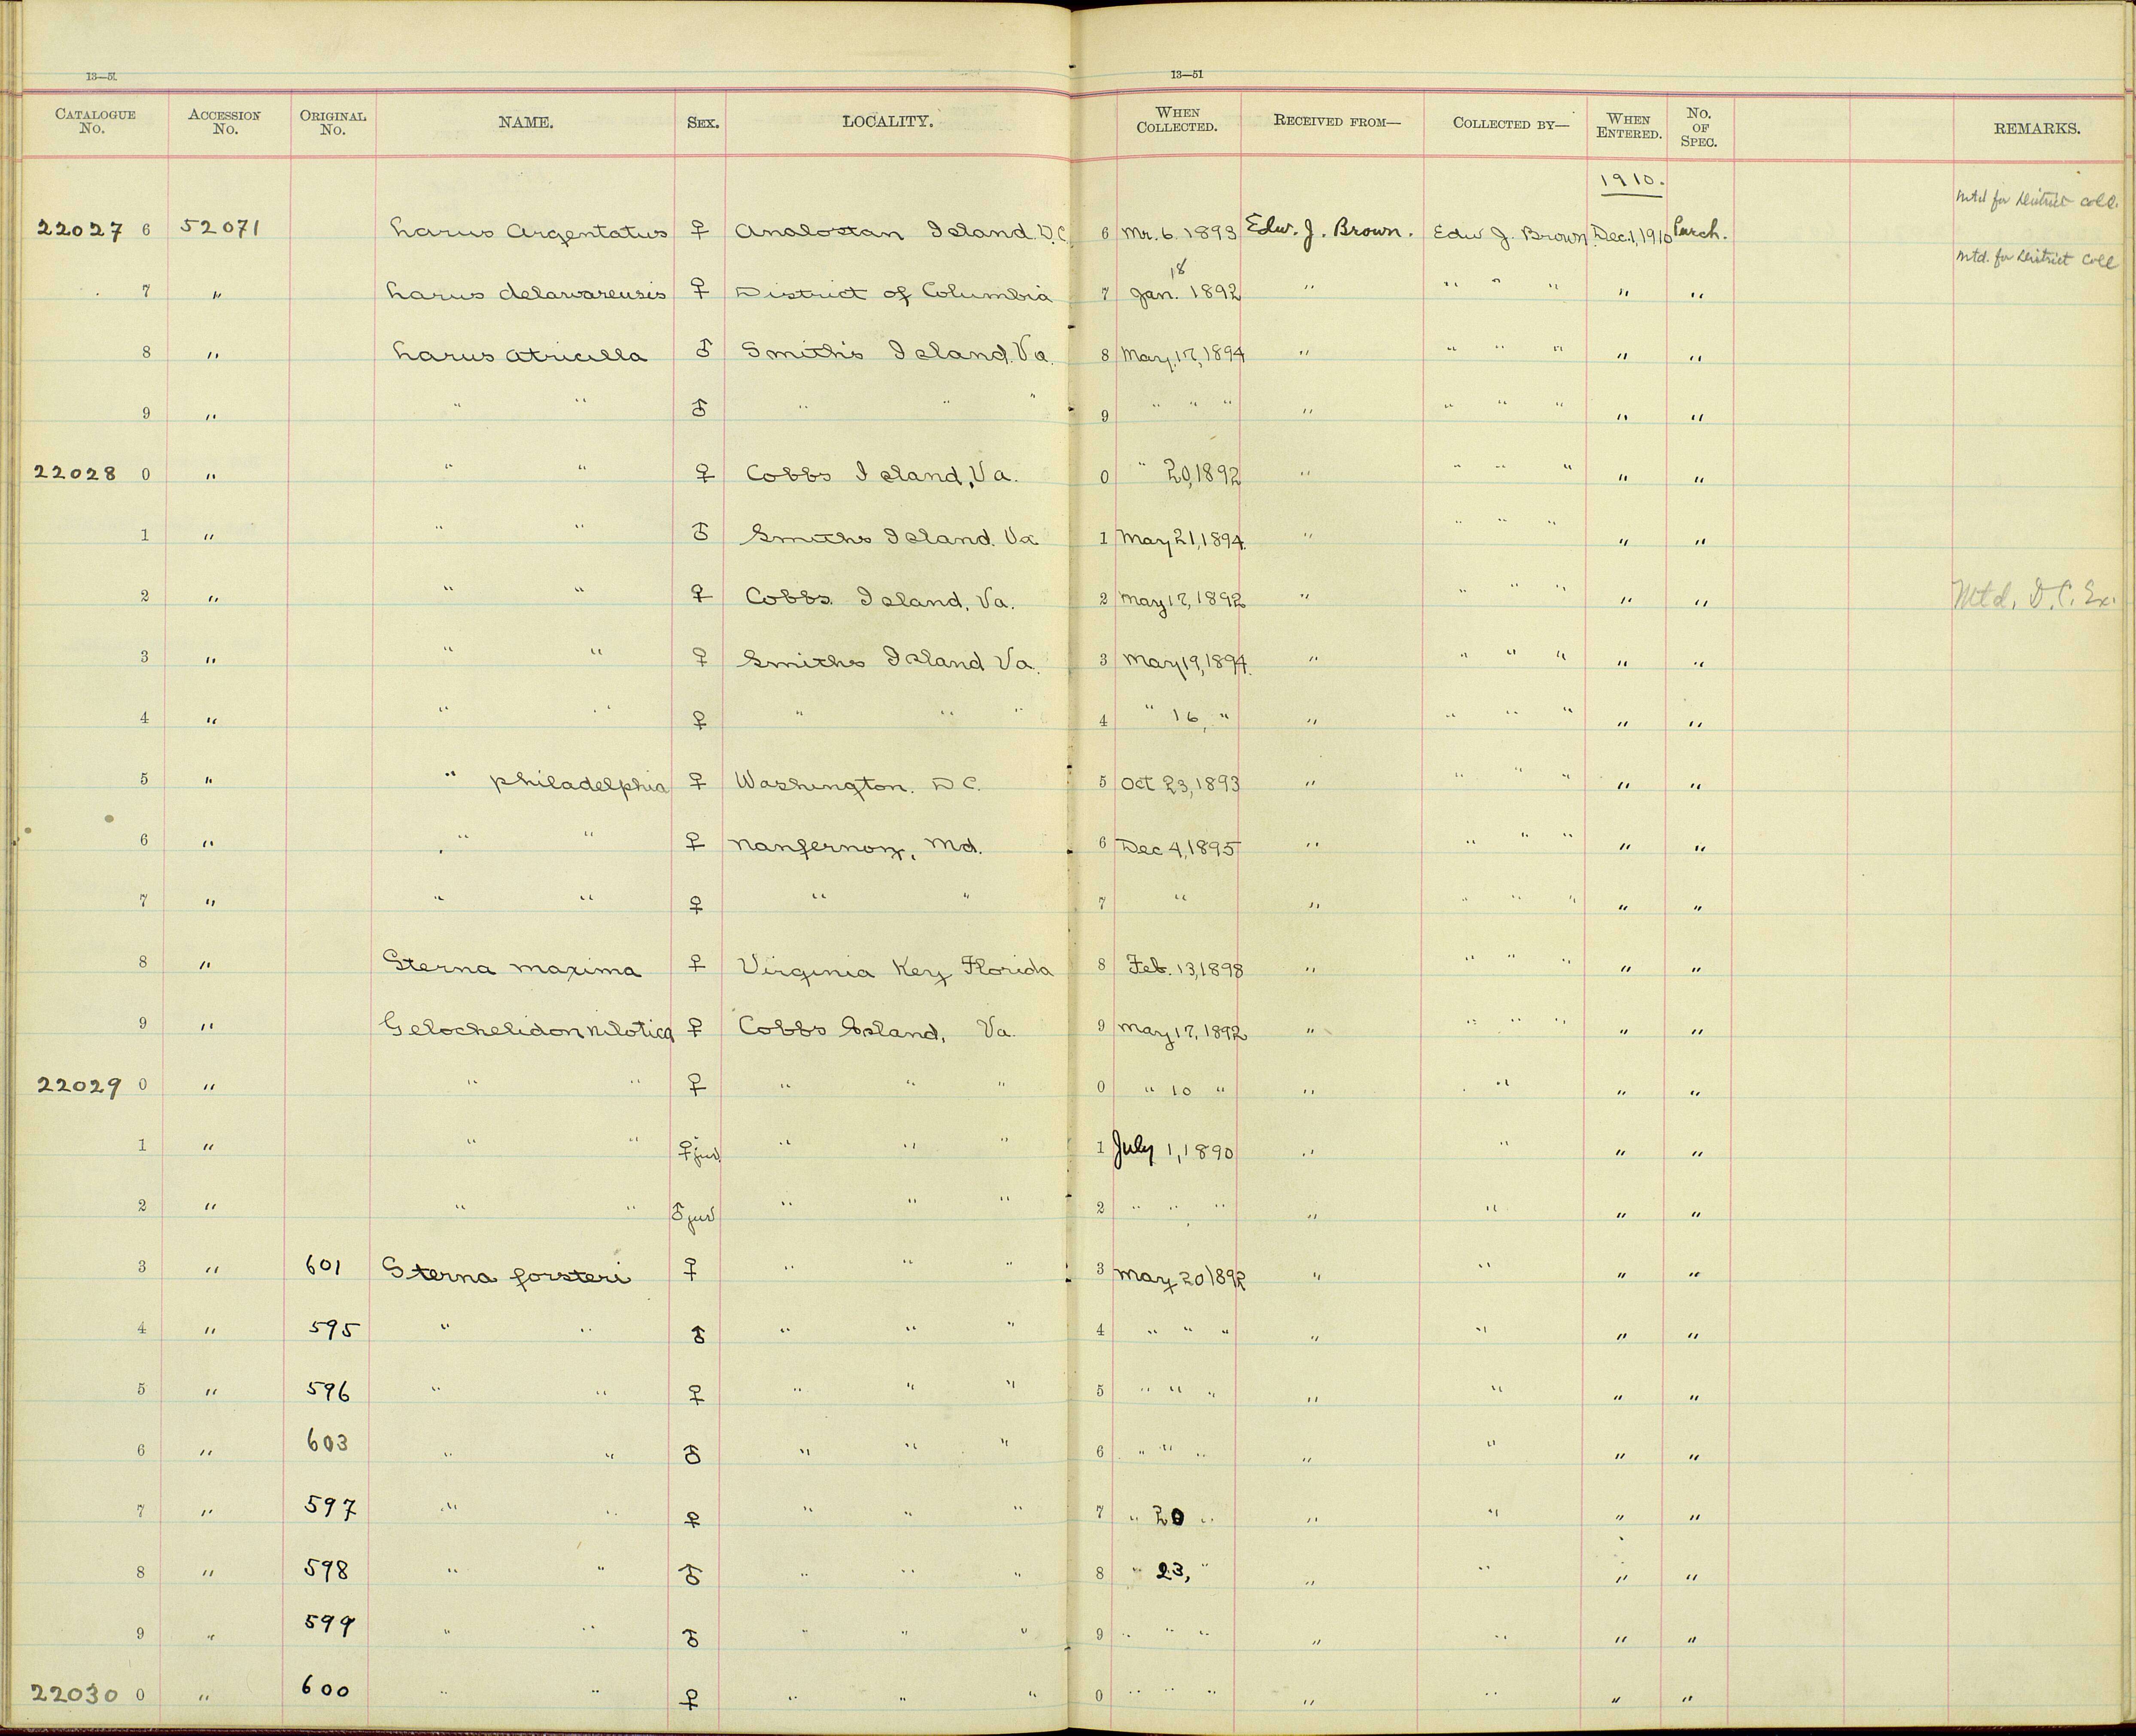 13—51 13—51
CATALOGUE No. ACCESSION No. ORIGINAL No. NAME. SEX. LOCALITY. WHEN COLLECTED. RECEIVED FROM— COLLECTED BY— WHEN ENTERED. No. OF SPEC. REMARKS.
1910.
Mtd for District Coll.
22027 6 52071 Larus Argentatus ♀ Analostan Island D.C. 6 Mr. 6. 1893 Edw. J. Brown. Edw J. Brown Dec. 1, 1910 Purch.
Mtd. for District Coll
18
7 " Larus delawarensis ♀ District of Columbia 7 Jan. 1892 " " " " " "
8 " Larus atricilla ♂ Smith's Island. Va. 8 May, 17, 1894 " " " " " "
9 " " " ♂ " " " 9 " " " " " " " " "
22028 0 " " " ♀ Cobbs Island, Va. 0 " 20, 1892 " " " " " "
1 " " " ♂ Smiths Island. Va 1 May 21, 1894. " " " " " "
2 " " " ♀ Cobbs Island, Va. 2 May 17, 1892 " " " " " " Mtd. D.C. Ex.
3 " " " ♀ Smiths Island Va. 3 May 19, 1894. " " " " " "
4 " " " ♀ " " " 4 " 16, " " " " " " "
5 " " philadelphia ♀ Washington. D C. 5 Oct 23, 1893 " " " " " "
6 " " " ♀ Nanjernoy, Md. 6 Dec 4, 1895 " " " " " "
7 " " " ♀ " " 7 " " " " " " "
8 " Sterna maxima ♀ Virginia Key Florida 8 Feb. 13, 1898 " " " " " "
9 " Gelochelidon nilotica ♀ Cobbs Island, Va. 9 May 17, 1892 " " " " " "
22029 0 " " " ♀ " " " 0 " 10 " " " " "
1 " " " ♀ juv. " " " 1 July 1, 1890 " " " "
2 " " " ♂ juv " " " 2 " " " " " " "
3 " 601 Sterna forsteri ♀ " " " 3 May 20 1892 " " " "
4 " 595 " " ♂ " " " 4 " " " " " " "
5 " 596 " " ♀ " " " 5 " " " " " " "
6 " 603 " " ♂ " " " 6 " " " " " " "
7 " 597 " " ♀ " " " 7 " 20 " " " " "
8 " 598 " " ♂ " " " 8 " 23, " " " " "
9 " 599 " " ♂ " " " 9 " " " " " " "
22030 0 " 600 " " ♀ " " " 0 " " " " " " "